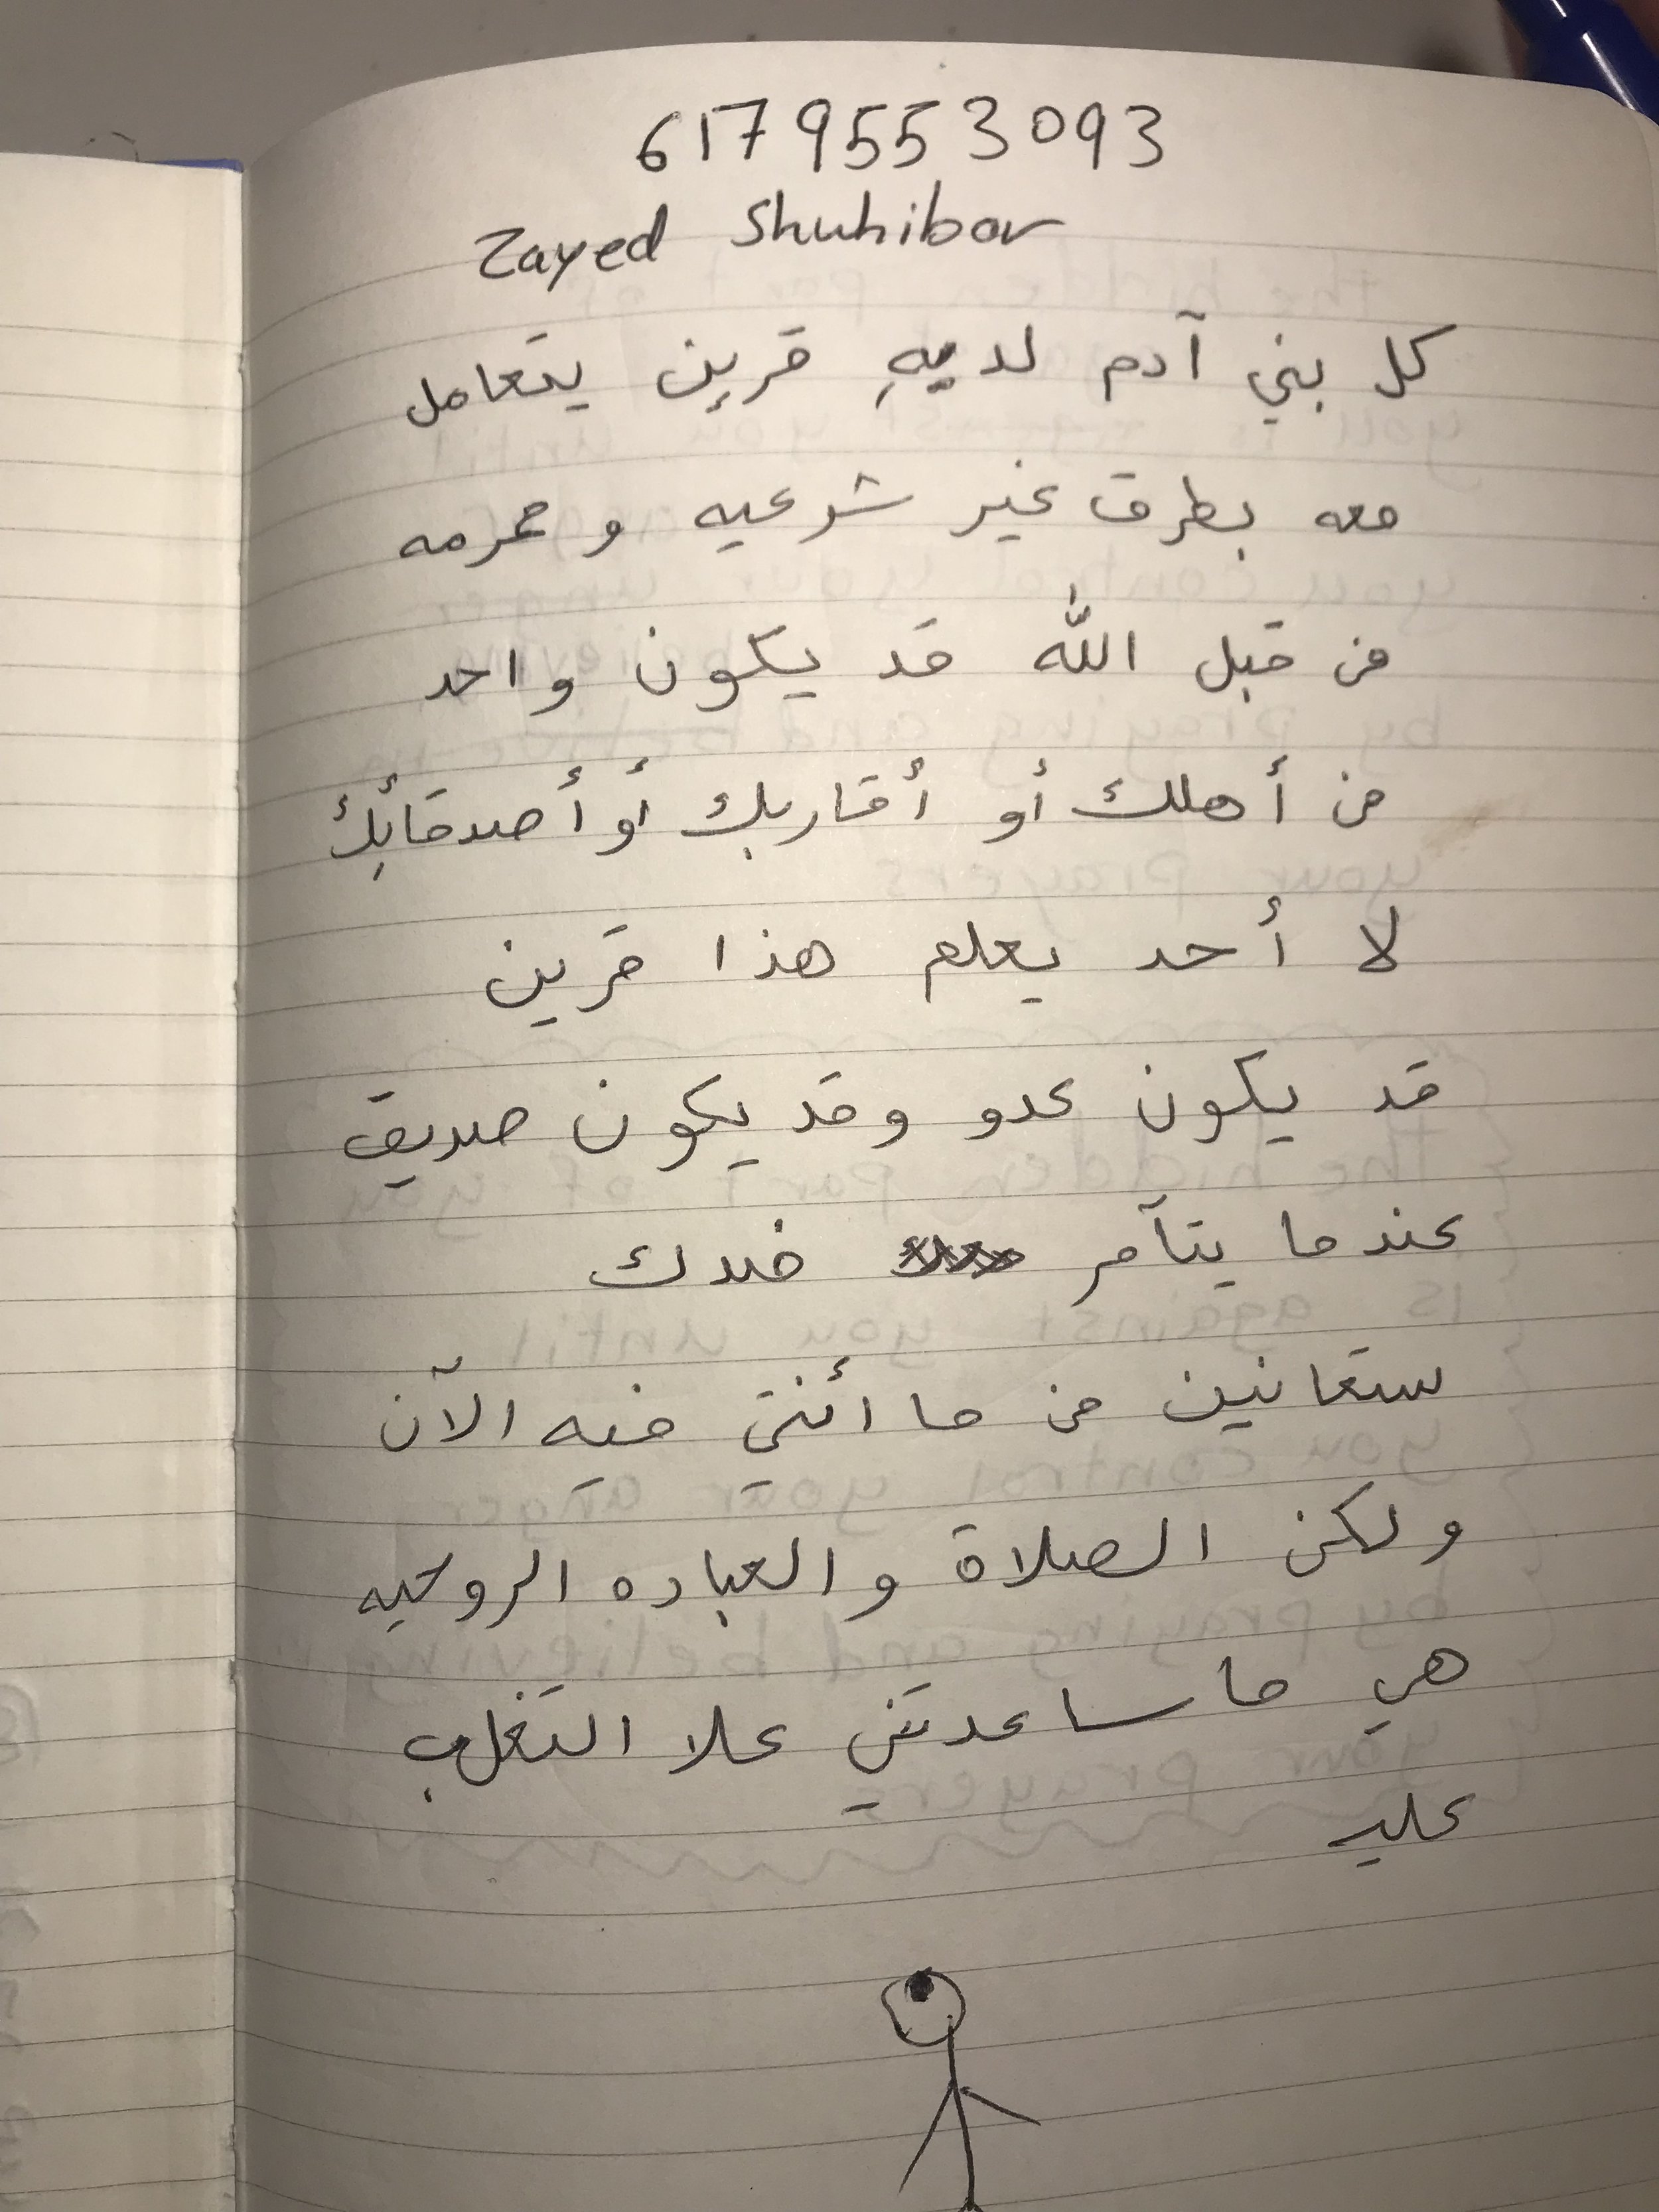 6179553093
Zayed Shuhibar
كل بني آدم لديهِ قرين يتعامل
معه بطرق غير شرعيه و محرمه
من قبل الله قد يكون واحد
من أهلك أو أقاربك أو أصدقائك
لا أحد يعلم هذا قرين
قد يكون عدو وقد يكون صديق
عندما يتآمر ضدك
ستعانين من ما أنتي فيه الآن
ولكن الصلاة و العباده الروحيه
هي ما ساعدتني علا التغلب
عليه